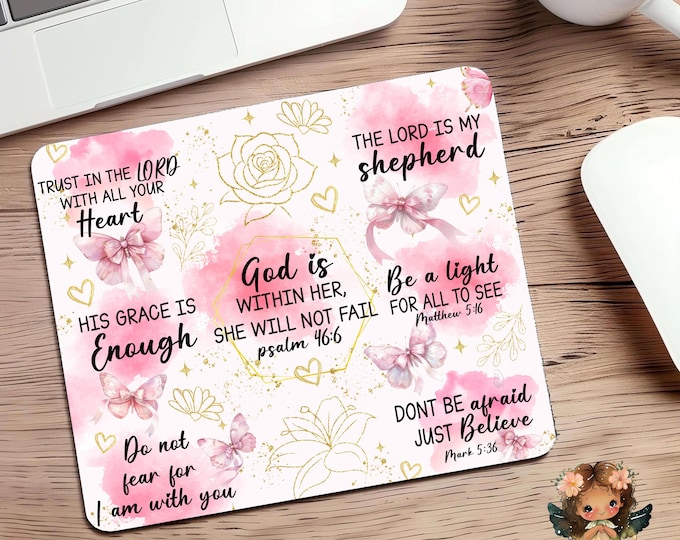 TRUST IN THE LORD
WITH ALL YOUR
Heart
THE LORD IS MY
shepherd
HIS GRACE IS
Enough
God is
WITHIN HER,
SHE WILL NOT FAIL
psalm 46:6
Be a light
FOR ALL TO SEE
Matthew 5:16
Do not
fear for
I am with you
DONT BE afraid
JUST Believe
Mark 5:36